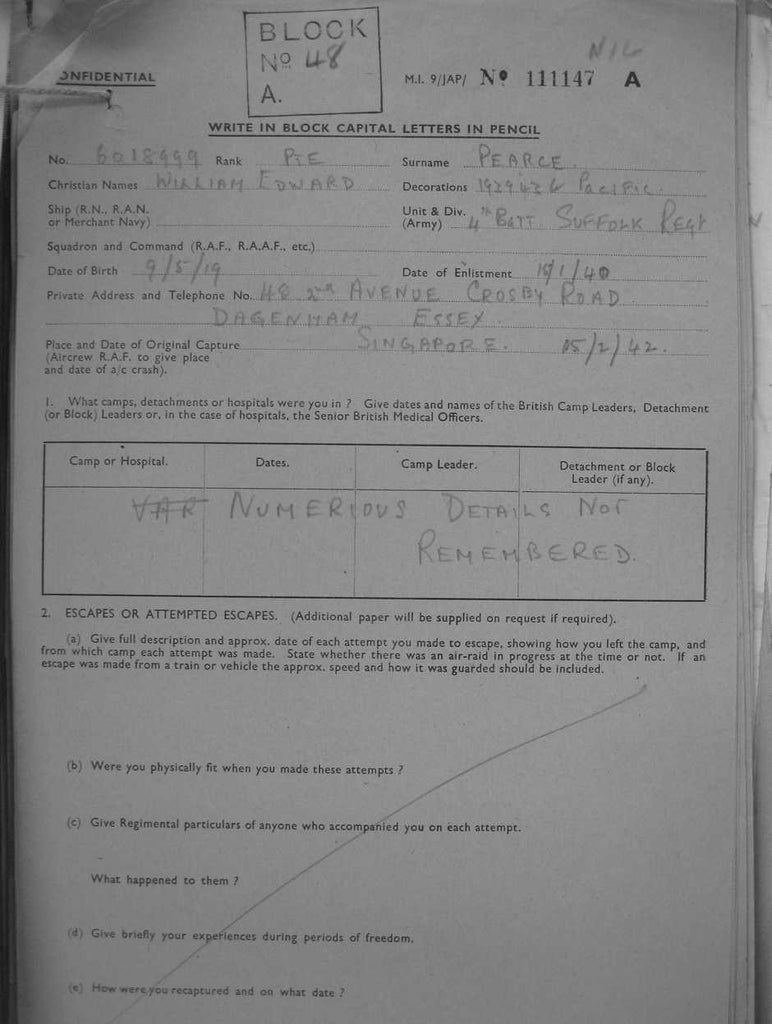 BLOCK
Nº 48
A.
NIL
ONFIDENTIAL
M.I. 9/JAP/ Nº 111147 A
WRITE IN BLOCK CAPITAL LETTERS IN PENCIL
No. 6018999 Rank PTE Surname PEARCE.
Christian Names WILLIAM EDWARD Decorations Pacific.
Ship (R.N., R.A.N.
or Merchant Navy)
Unit & Div.
(Army) 4th BATT. SUFFOLK REGT
Squadron and Command (R.A.F., R.A.A.F., etc.)
Date of Birth 9/5/19 Date of Enlistment /1/40
Private Address and Telephone No. 48 2nd AVENUE CROSBY ROAD
DAGENHAM ESSEX.
Place and Date of Original Capture SINGAPORE. 15/2/42.
(Aircrew R.A.F. to give place
and date of a/c crash).
1. What camps, detachments or hospitals were you in ? Give dates and names of the British Camp Leaders, Detachment
(or Block) Leaders or, in the case of hospitals, the Senior British Medical Officers.
Camp or Hospital. Dates. Camp Leader. Detachment or Block
Leader (if any).
VAR NUMERIOUS DETAILS NOT
REMEMBERED.
2. ESCAPES OR ATTEMPTED ESCAPES. (Additional paper will be supplied on request if required).
(a) Give full description and approx. date of each attempt you made to escape, showing how you left the camp, and
from which camp each attempt was made. State whether there was an air-raid in progress at the time or not. If an
escape was made from a train or vehicle the approx. speed and how it was guarded should be included.
(b) Were you physically fit when you made these attempts ?
(c) Give Regimental particulars of anyone who accompanied you on each attempt.
What happened to them ?
(d) Give briefly your experiences during periods of freedom.
(e) How were you recaptured and on what date ?